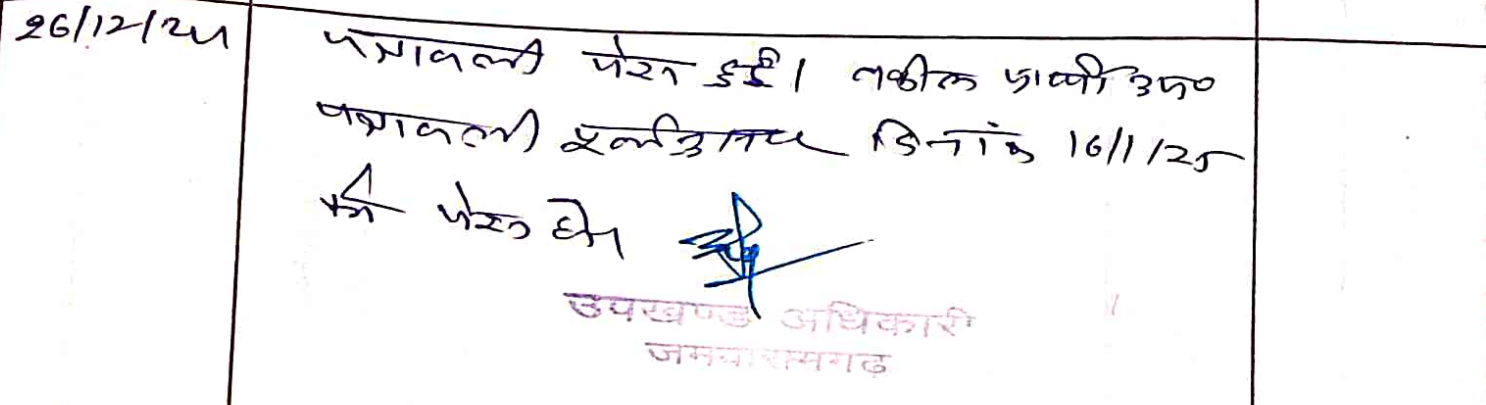 26/12/24 पत्रावली पेश हुई। वकील प्रार्थी उप०
पत्रावली दिनांक 16/1/25
को पेश हो।
उपखण्ड अधिकारी
जमवारामगढ़